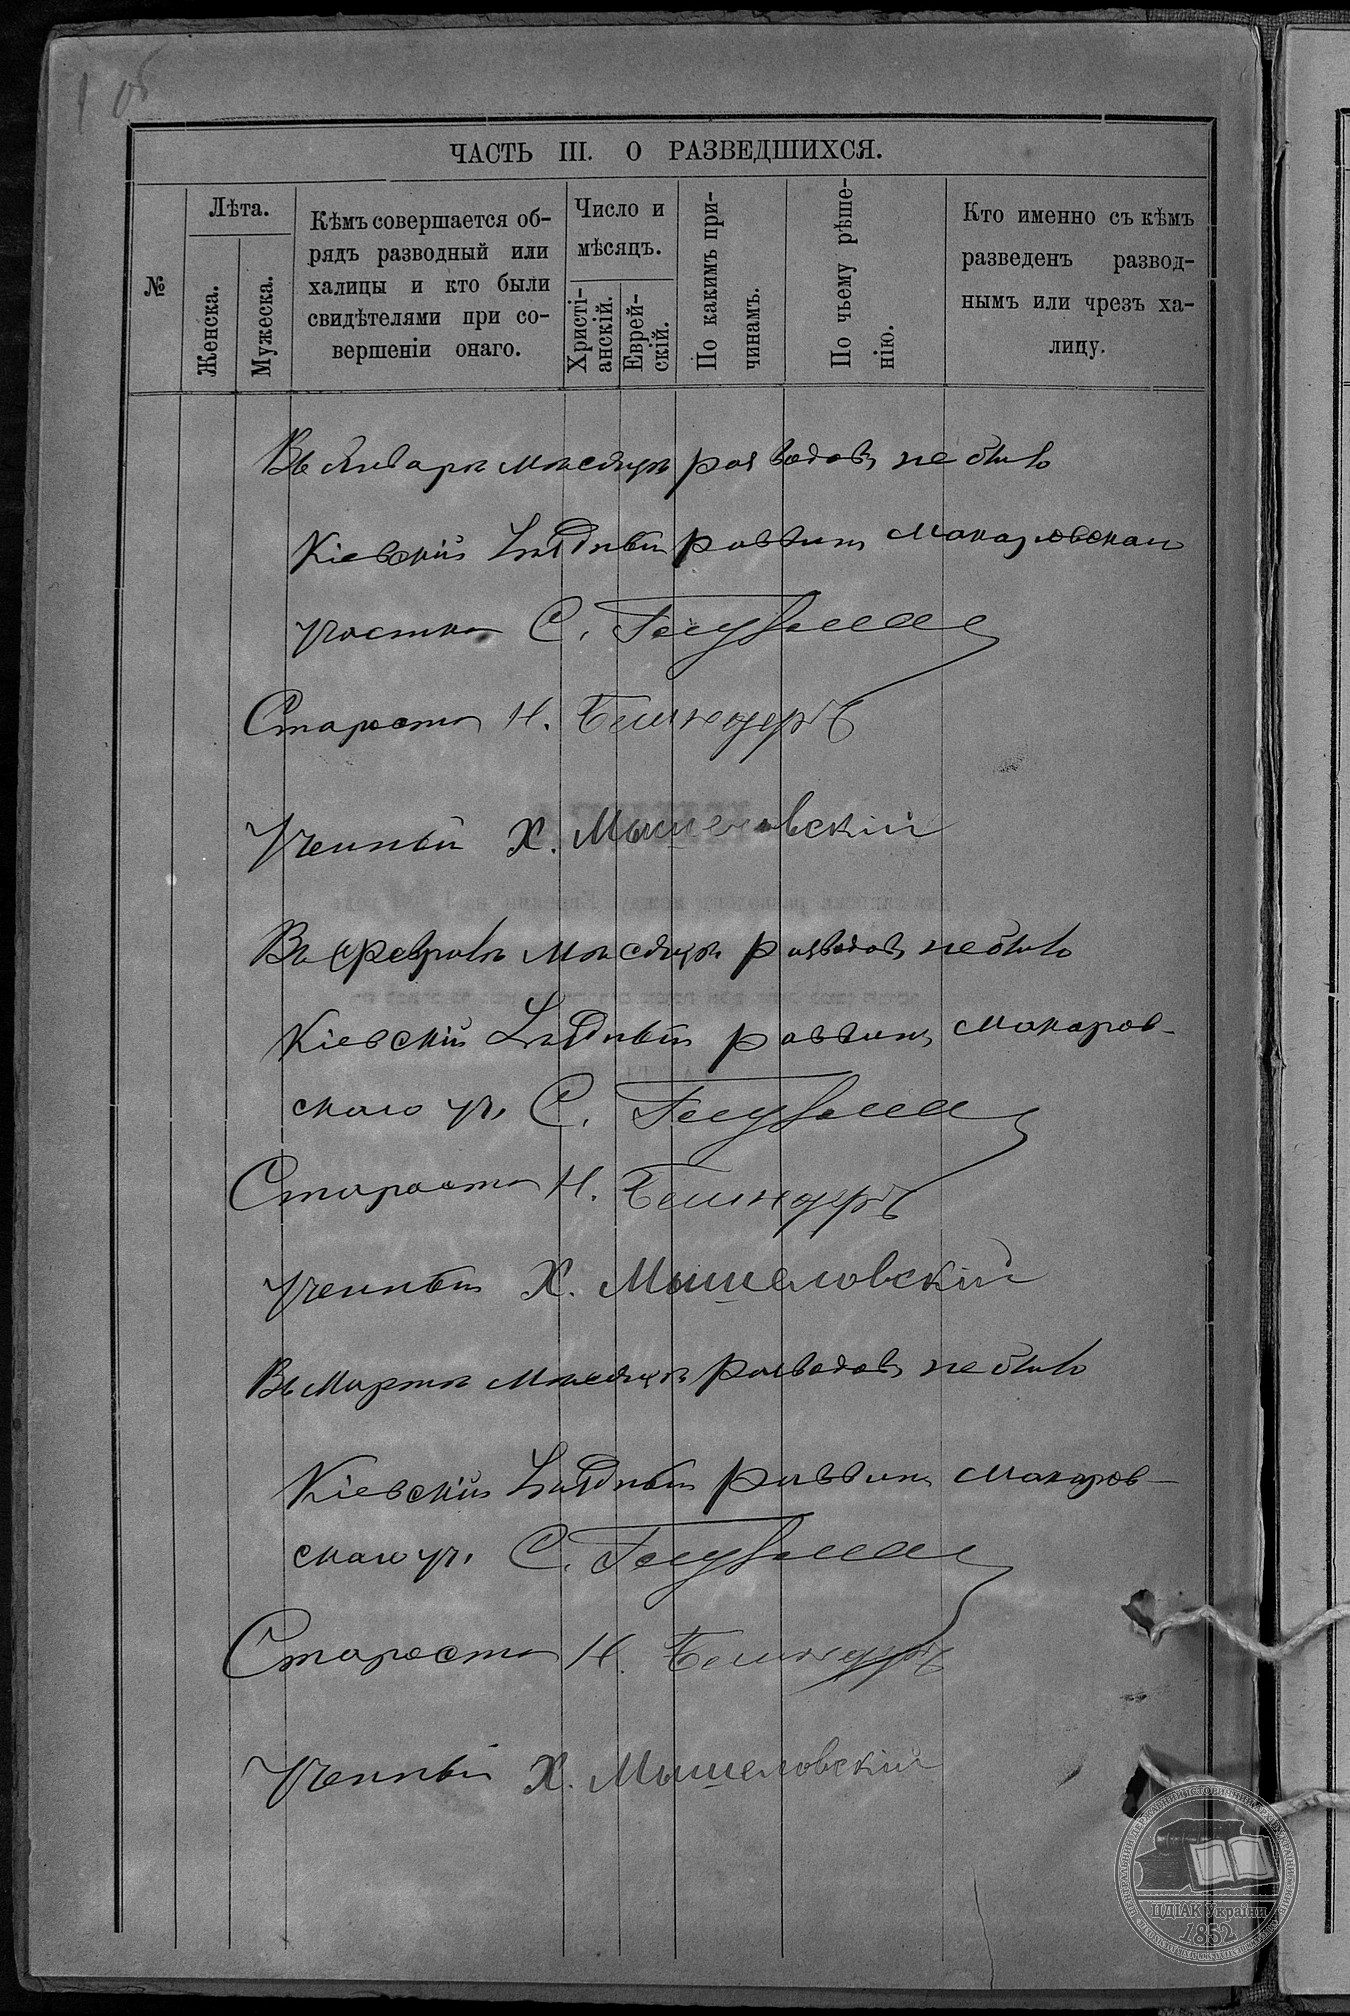 1 об
ЧАСТЬ III. О РАЗВЕДШИХСЯ.
№
Лѣта.
Женска.
Мужеска.
Кѣмъ совершается об-
рядъ разводный или
халицы и кто были
свидѣтелями при со-
вершеніи онаго.
Число и
мѣсяцъ.
Христі-
анскій.
Еврей-
скій.
По какимъ при-
чинамъ.
По чьему рѣше-
нію.
Кто именно съ кѣмъ
разведенъ развод-
нымъ или чрезъ ха-
лицу.
Въ Январѣ мѣсяцѣ разводовъ не было
Кіевскій Уѣздный раввинъ Макаровскаго
участка С.
Староста Н.
Ученный Х. Мышеловскій
Въ Февралѣ мѣсяцѣ разводовъ не было
Кіевскій Уѣздный раввинъ Макаров-
скаго уч. С.
Староста Н.
Ученный Х. Мышеловскій
Въ Мартѣ мѣсяцѣ разводовъ не было
Кіевскій Уѣздный раввинъ Макаров-
скаго уч. С.
Староста Н.
Ученный Х. Мышеловскій
ЦДІАК України
1852